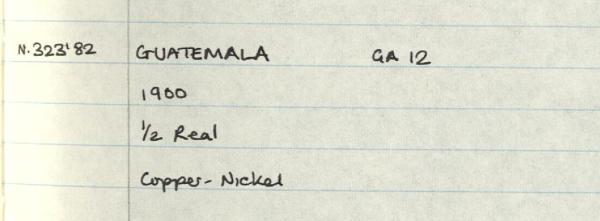 N.323'82 GUATEMALA GA 12
1900
1/2 Real
Copper-Nickel